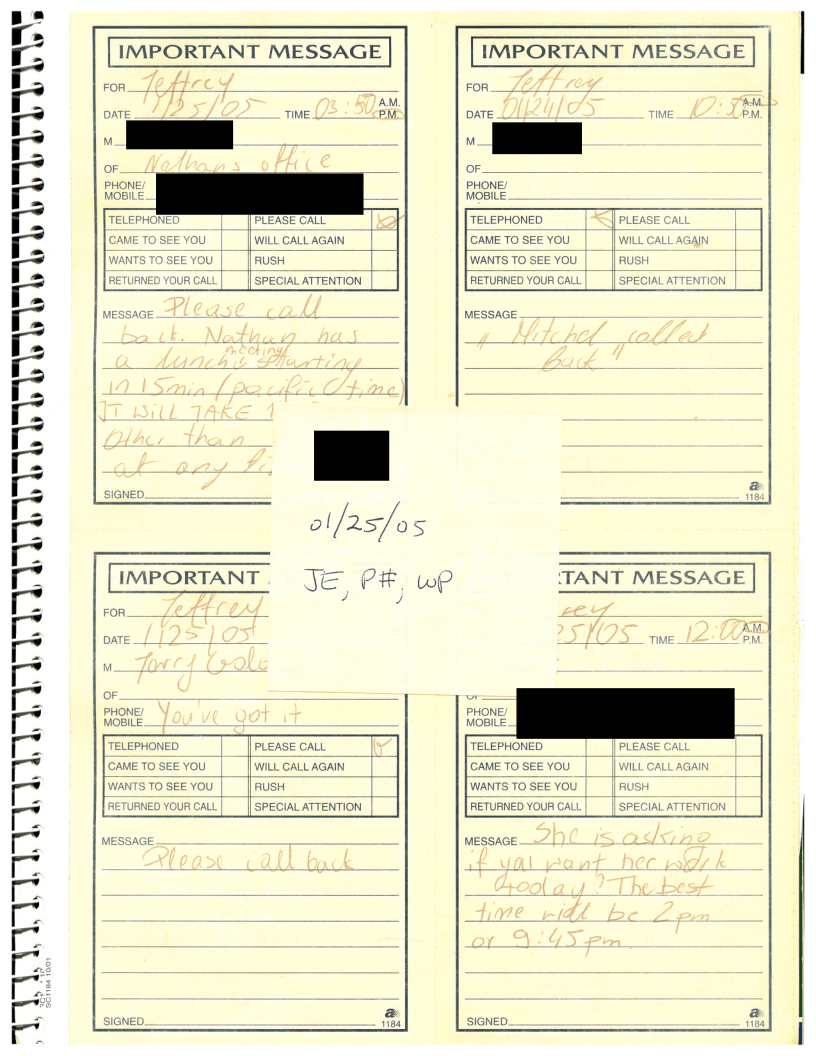 IMPORTANT MESSAGE
FOR Jeffrey
DATE 1/25/05 TIME 03:50 A.M. P.M.
M
OF Nathans office
PHONE/
MOBILE
TELEPHONED PLEASE CALL
CAME TO SEE YOU WILL CALL AGAIN
WANTS TO SEE YOU RUSH
RETURNED YOUR CALL SPECIAL ATTENTION
MESSAGE Please call
back. Nathan has
a lunch meeting starting
in 15min (pacific time)
IT WILL TAKE 1
Other than
at any
SIGNED
IMPORTANT MESSAGE
FOR Jeffrey
DATE 01/24/05 TIME A.M. P.M.
M
OF
PHONE/
MOBILE
TELEPHONED PLEASE CALL
CAME TO SEE YOU WILL CALL AGAIN
WANTS TO SEE YOU RUSH
RETURNED YOUR CALL SPECIAL ATTENTION
MESSAGE
"Mitchel "called
back"
SIGNED
a
1184
01/25/05
JE, P#, WP
IMPORTANT
FOR Jeffrey
DATE 1/25/05
M
OF
PHONE/
MOBILE You've got it
TELEPHONED PLEASE CALL
CAME TO SEE YOU WILL CALL AGAIN
WANTS TO SEE YOU RUSH
RETURNED YOUR CALL SPECIAL ATTENTION
MESSAGE
Please call back
SIGNED
a
1184
TANT MESSAGE
rey
25/05 TIME 12:00 A.M. P.M.
OF
PHONE/
MOBILE
TELEPHONED PLEASE CALL
CAME TO SEE YOU WILL CALL AGAIN
WANTS TO SEE YOU RUSH
RETURNED YOUR CALL SPECIAL ATTENTION
MESSAGE She is asking
if yal want her work
today? The best
time will be 2pm
or 9:45pm.
SIGNED
a
1184
SC1184 10/01